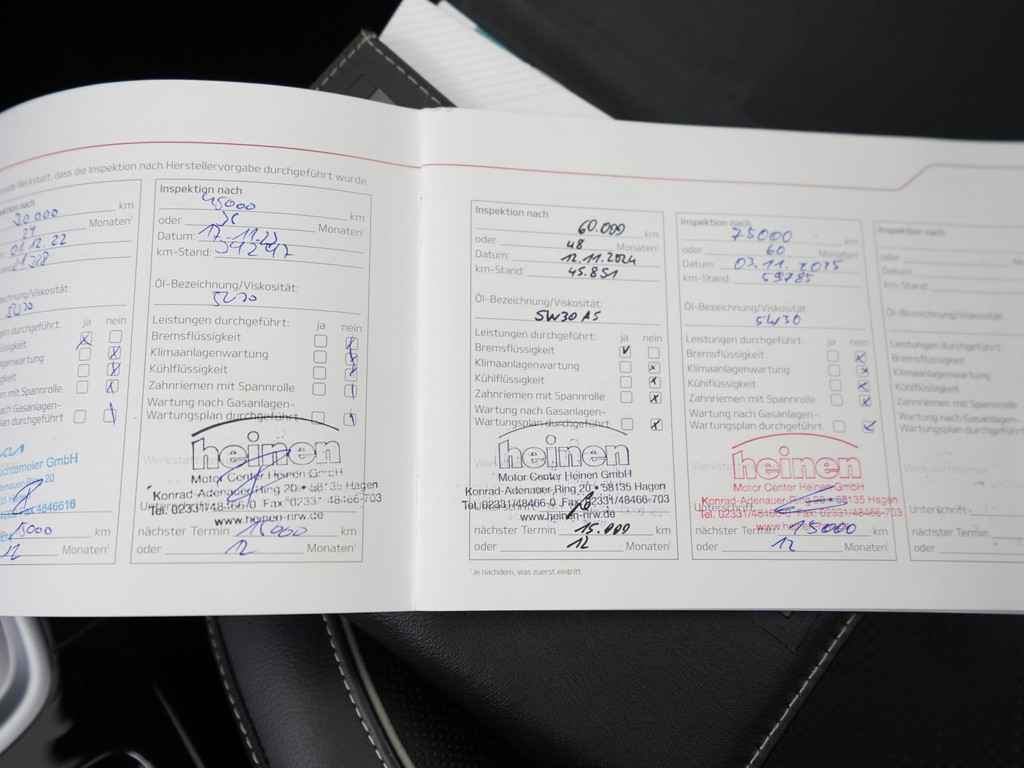 dass die Inspektion nach Herstellervorgabe durchgeführt wurde.
30.000 km
24 Monaten
01.12.22
5W30
ja nein
mit Spannrolle
nach Gasanlagen-
durchgeführt
GmbH
15000 km
12 Monaten
Inspektion nach
45000 km
oder 36 Monaten
Datum: 17.11.23
km-Stand: 34247
Öl-Bezeichnung/Viskosität:
5W30
Leistungen durchgeführt: ja nein
Bremsflüssigkeit
Klimaanlagenwartung
Kühlflüssigkeit
Zahnriemen mit Spannrolle
Wartung nach Gasanlagen-
Wartungsplan durchgeführt
heinen
Motor Center Heinen GmbH
Konrad-Adenauer-Ring 20 • 58135 Hagen
Tel. 02331/48466-0 Fax 02331/48466-703
www.heinen-nrw.de
nächster Termin 15000 km
oder 12 Monaten
Inspektion nach
60.000 km
oder 48 Monaten
Datum: 12.11.2024
km-Stand: 45.851
Öl-Bezeichnung/Viskosität:
5W30 A5
Leistungen durchgeführt: ja nein
Bremsflüssigkeit
Klimaanlagenwartung
Kühlflüssigkeit
Zahnriemen mit Spannrolle
Wartung nach Gasanlagen-
Wartungsplan durchgeführt
heinen
Motor Center Heinen GmbH
Konrad-Adenauer-Ring 20 • 58135 Hagen
Tel. 02331/48466-0 Fax 02331/48466-703
www.heinen-nrw.de
nächster Termin 15.000 km
oder 12 Monaten
¹Je nachdem, was zuerst eintritt.
Inspektion nach
75000 km
oder 60 Monaten
Datum: 03.11.2025
km-Stand: 59785
Öl-Bezeichnung/Viskosität:
5W30
Leistungen durchgeführt: ja nein
Bremsflüssigkeit
Klimaanlagenwartung
Kühlflüssigkeit
Zahnriemen mit Spannrolle
Wartung nach Gasanlagen-
Wartungsplan durchgeführt
heinen
Motor Center Heinen GmbH
Konrad-Adenauer-Ring 20 • 58135 Hagen
Tel. 02331/48466-0 Fax 02331/48466-703
Unterschrift
nächster Termin 15000 km
oder 12 Monaten
Inspektion nach
oder
Datum:
km-Stand:
Öl-Bezeichnung/Viskosität:
Leistungen durchgeführt:
Bremsflüssigkeit
Klimaanlagenwartung
Kühlflüssigkeit
Zahnriemen mit Spannrolle
Wartung nach Gasanlagen-
Wartungsplan durchgeführt
Unterschrift:
nächster Termin
oder